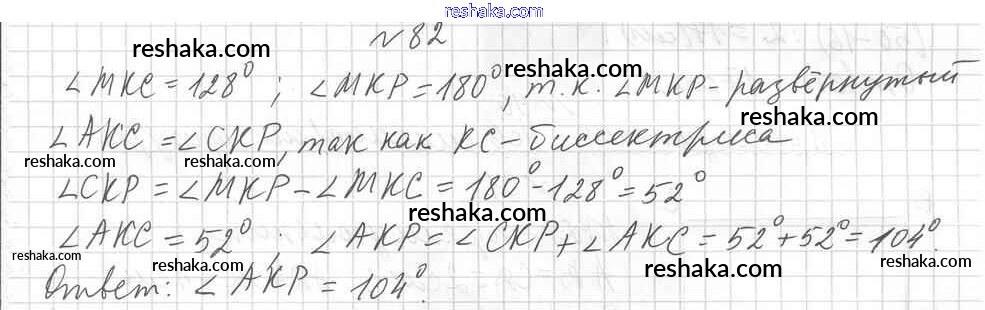 reshaka.com
№ 82
reshaka.com
∠MKC = 128° ; ∠MKP = 180°, т.к. ∠MKP - развёрнутый
reshaka.com reshaka.com
∠AKC = ∠CKP, так как KC - биссектриса
reshaka.com reshaka.com
∠CKP = ∠MKP - ∠MKC = 180° - 128° = 52°
reshaka.com
∠AKC = 52° ; ∠AKP = ∠CKP + ∠AKC = 52° + 52° = 104°.
reshaka.com reshaka.com reshaka.com
Ответ: ∠AKP = 104°.